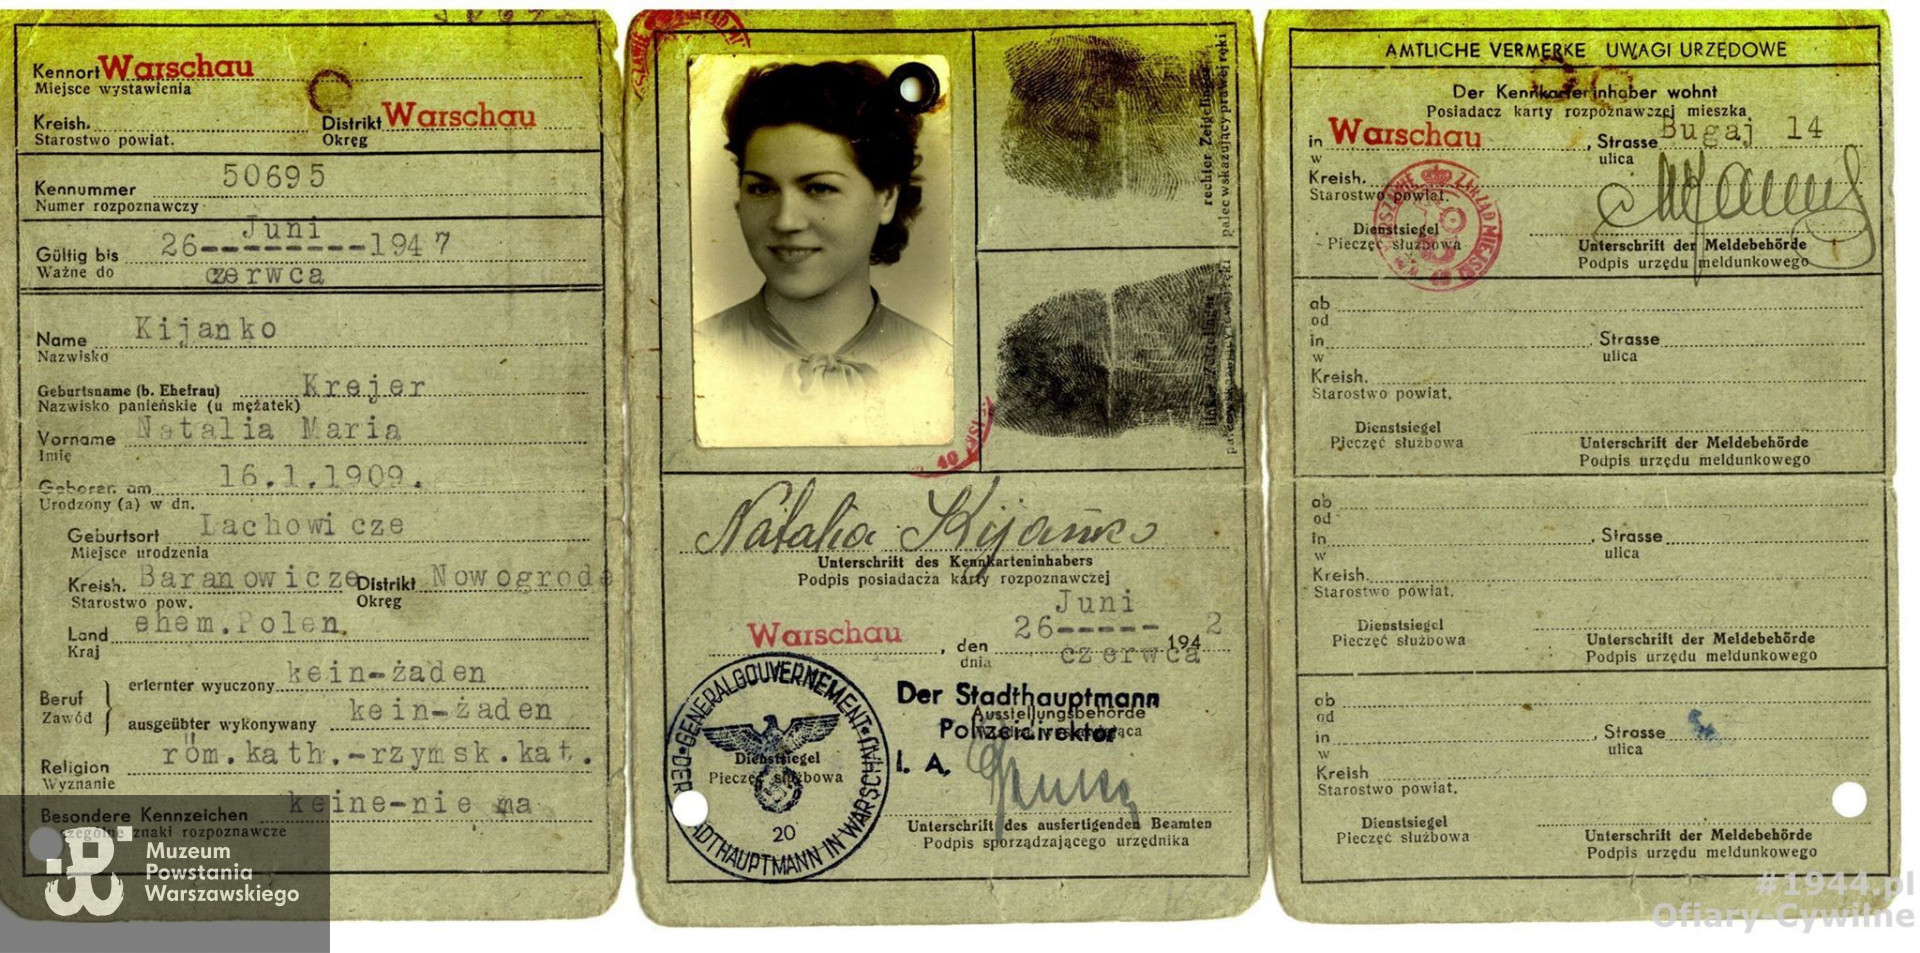 Kennort Warschau
Miejsce wystawienia
Kreish. Distrikt Warschau
Starostwo powiat. Okręg
Kennummer 50695
Numer rozpoznawczy
Juni
Gültig bis 26--------1947
Ważne do czerwca
Name Kijanko
Nazwisko
Geburtsname (b. Ehefrau) Krejer
Nazwisko panieńskie (u mężatek)
Vorname Natalia Maria
Imię
Geboren am 16.1.1909.
Urodzony (a) w dn.
Geburtsort Lachowicze
Miejsce urodzenia
Kreish. Baranowicze Distrikt Nowogrode
Starostwo pow. Okręg
Land ehem.Polen
Kraj
Beruf erlernter wyuczony kein-żaden
Zawód ausgeübter wykonywany kein-żaden
Religion röm.kath.-rzymsk.kat.
Wyznanie
Besondere Kennzeichen keine-nie ma
znaki rozpoznawcze
Muzeum
Powstania
Warszawskiego
rechter Zeigefinger
palec wskazujący prawej ręki
linker Zeigefinger
Natalia Kijanko
Unterschrift des Kennkarteninhabers
Podpis posiadacza karty rozpoznawczej
Juni
Warschau, den 26----- 1942
dnia czerwca
Der Stadthauptmann
Ausstellungsbehörde
Polizeidirektor
I. A.
Dienstsiegel
Pieczęć służbowa
GENERALGOUVERNEMENT
DER STADTHAUPTMANN IN WARSCHAU
20
Unterschrift des ausfertigenden Beamten
Podpis sporządzającego urzędnika
AMTLICHE VERMERKE UWAGI URZĘDOWE
Der Kennkarteninhaber wohnt
Posiadacz karty rozpoznawczej mieszka
in Warschau, Strasse Bugaj 14
w ulica
Kreish.
Starostwo powiat.
ZARZĄD MIEJSKI
Dienstsiegel Unterschrift der Meldebehörde
Pieczęć służbowa Podpis urzędu meldunkowego
ab
od
in , Strasse
w ulica
Kreish.
Starostwo powiat.
Dienstsiegel Unterschrift der Meldebehörde
Pieczęć służbowa Podpis urzędu meldunkowego
ab
od
in , Strasse
w ulica
Kreish.
Starostwo powiat.
Dienstsiegel Unterschrift der Meldebehörde
Pieczęć służbowa Podpis urzędu meldunkowego
ab
od
in , Strasse
w ulica
Kreish
Starostwo powiat.
Dienstsiegel Unterschrift der Meldebehörde
Pieczęć służbowa Podpis urzędu meldunkowego
#1944.pl
Ofiary-Cywilne